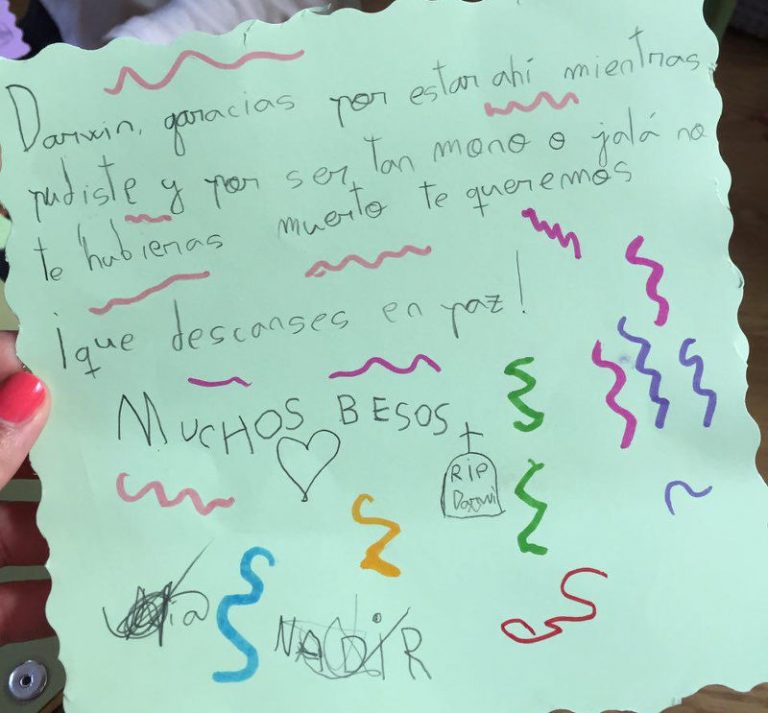 Darwin, garacias por estar ahí mientras
pudiste y por ser tan mono o jalá no
te hubieras muerto te queremos
¡que descanses en paz!
MUCHOS BESOS
RiP
NADiR